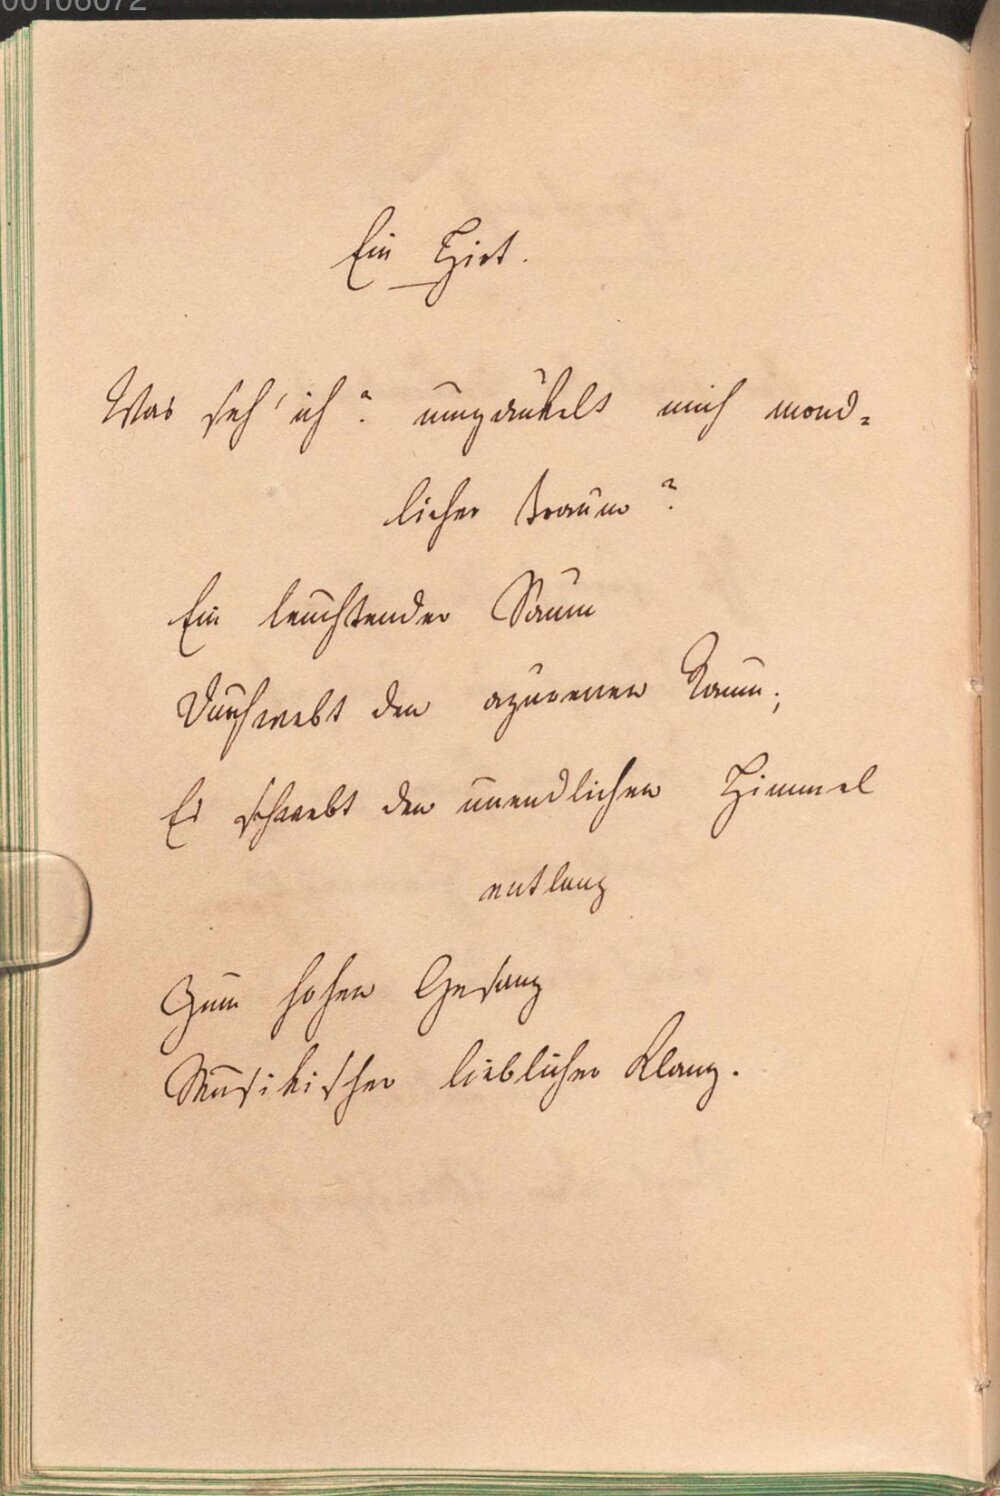 00106072
Ein Hirt.
Was seh' ich? umgaukelt mich mond-
licher Traum?
Ein leuchtender Saum
Durchwebt den azurenen Raum;
Es schwebt den unendlichen Himmel
entlang
Zum hohen Gesang
Musikischer lieblicher Klang.